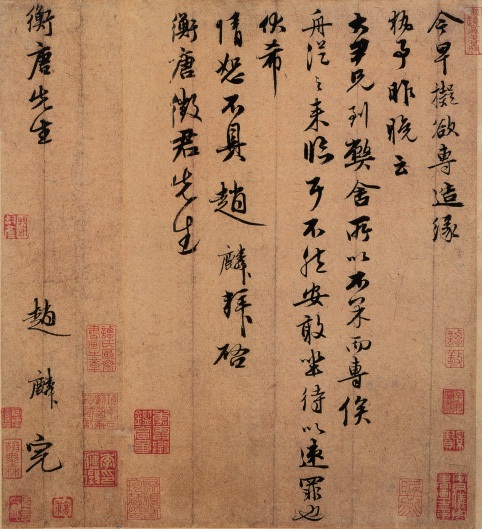 今早擬欲專造緣
昨晚云
大尹兄到弊舍所以不果而專俟
舟從之來臨耳不然安敢坐待以速罪也
伏希
情恕不具趙麟拜啓
衡唐徵君先生
衡唐先生 趙麟完